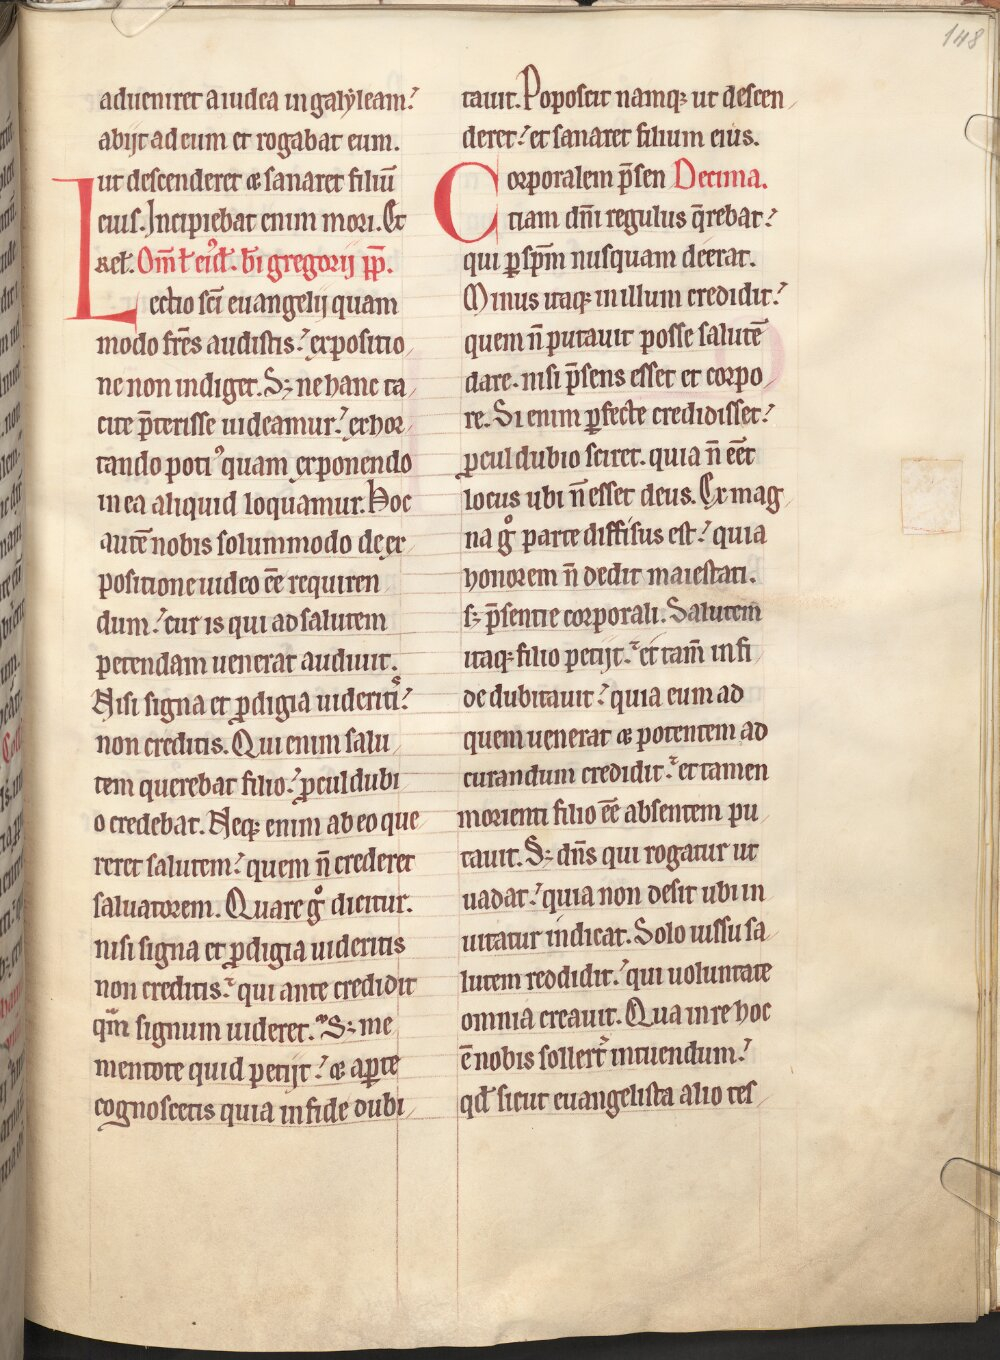 148
adueniret a iudea in galyleam?
abijt ad eum et rogabat eum.
ut descenderet & sanaret filiū
eius. Incipiebat enim mori. Et
rel̄. Om̄l eiđ. bī gregorij pp̄.
Lectio scī euangelij quam
modo frēs audistis? expositio
ne non indiget. Sꝫ ne hanc ta
cite p̄terisse uideamur? exhor
tando potiꝰ quam exponendo
in ea aliquid loquamur. Hoc
autē nobis solummodo de ex
positione uideo ēe requiren
dum? cur is qui ad salutem
petendam uenerat audiuit.
Nisi signa et ꝓdigia uideritis?
non creditis. Qui enim salu
tem querebat filio? ꝓculdubi
o credebat. Neqꝫ enim ab eo que
reret salutem? quem n̄ crederet
saluatorem. Quare gͦ dicitur.
nisi signa et ꝓdigia uideritis
non creditis? qui ante credidit
qm̄ signum uideret. Sꝫ me
mentote quid petijt? & aꝑte
cognoscetis quia in fide dubi
tauit. Poposcit namqꝫ ut descen
deret? et sanaret filium eius.
Corporalem p̄sen Decima.
tiam dn̄i regulus q̄rebat?
qui ꝑ sp̄m nusquam deerat.
Minus itaqꝫ in illum credidit?
quem n̄ putauit posse salutē
dare. nisi p̄sens esset et corpo
re. Si enim ꝑfecte credidisset?
ꝓculdubio sciret. quia n̄ eēt
locus ubi n̄ esset deus. Ex mag
na gͦ parte diffisus est? quia
honorem n̄ dedit maiestati.
sꝫ p̄sentie corporali. Salutem
itaqꝫ filio petijt? et tam̄ in fi
de dubitauit? quia eum ad
quem uenerat & potentem ad
curandum credidit? et tamen
morienti filio eē absentem pu
tauit. Sꝫ dn̄s qui rogatur ut
uadat? quia non desit ubi in
uitatur indicat. Solo iussu sa
lutem reddidit? qui uoluntate
omnia creauit. Qua in re hoc
ē nobis sollert᷑ intuendum?
qđ sicut euangelista alio tes